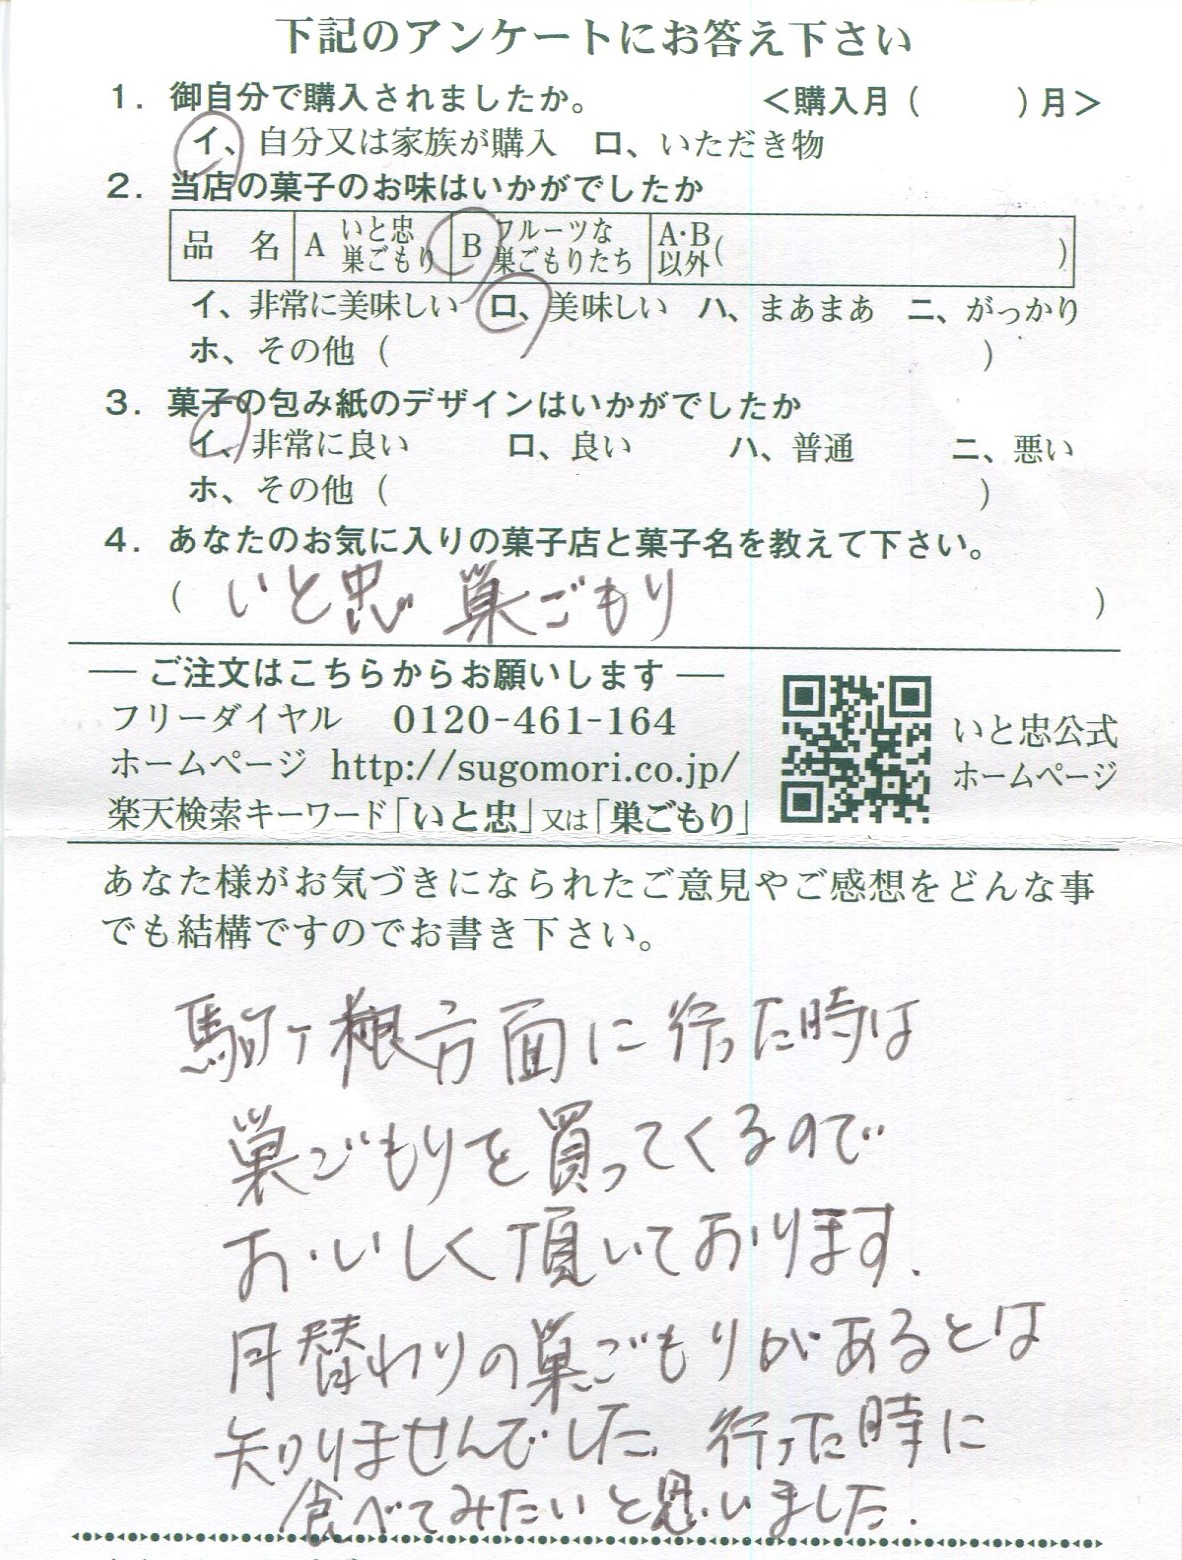 下記のアンケートにお答え下さい
1. 御自分で購入されましたか。 <購入月( )月>
イ、自分又は家族が購入 ロ、いただき物
2. 当店の菓子のお味はいかがでしたか
品 名 A いと忠 巣ごもり B フルーツな 巣ごもりたち A・B 以外( )
イ、非常に美味しい ロ、美味しい ハ、まあまあ ニ、がっかり
ホ、その他( )
3. 菓子の包み紙のデザインはいかがでしたか
イ、非常に良い ロ、良い ハ、普通 ニ、悪い
ホ、その他( )
4. あなたのお気に入りの菓子店と菓子名を教えて下さい。
( いと忠 巣ごもり )
― ご注文はこちらからお願いします ―
フリーダイヤル 0120-461-164
ホームページ http://sugomori.co.jp/
楽天検索キーワード「いと忠」又は「巣ごもり」
いと忠公式
ホームページ
あなた様がお気づきになられたご意見やご感想をどんな事
でも結構ですのでお書き下さい。
駒ヶ根方面に行った時は
巣ごもりを買ってくるので
おいしく頂いております.
月替わりの巣ごもりがあるとは
知りませんでした. 行った時に
食べてみたいと思いました.